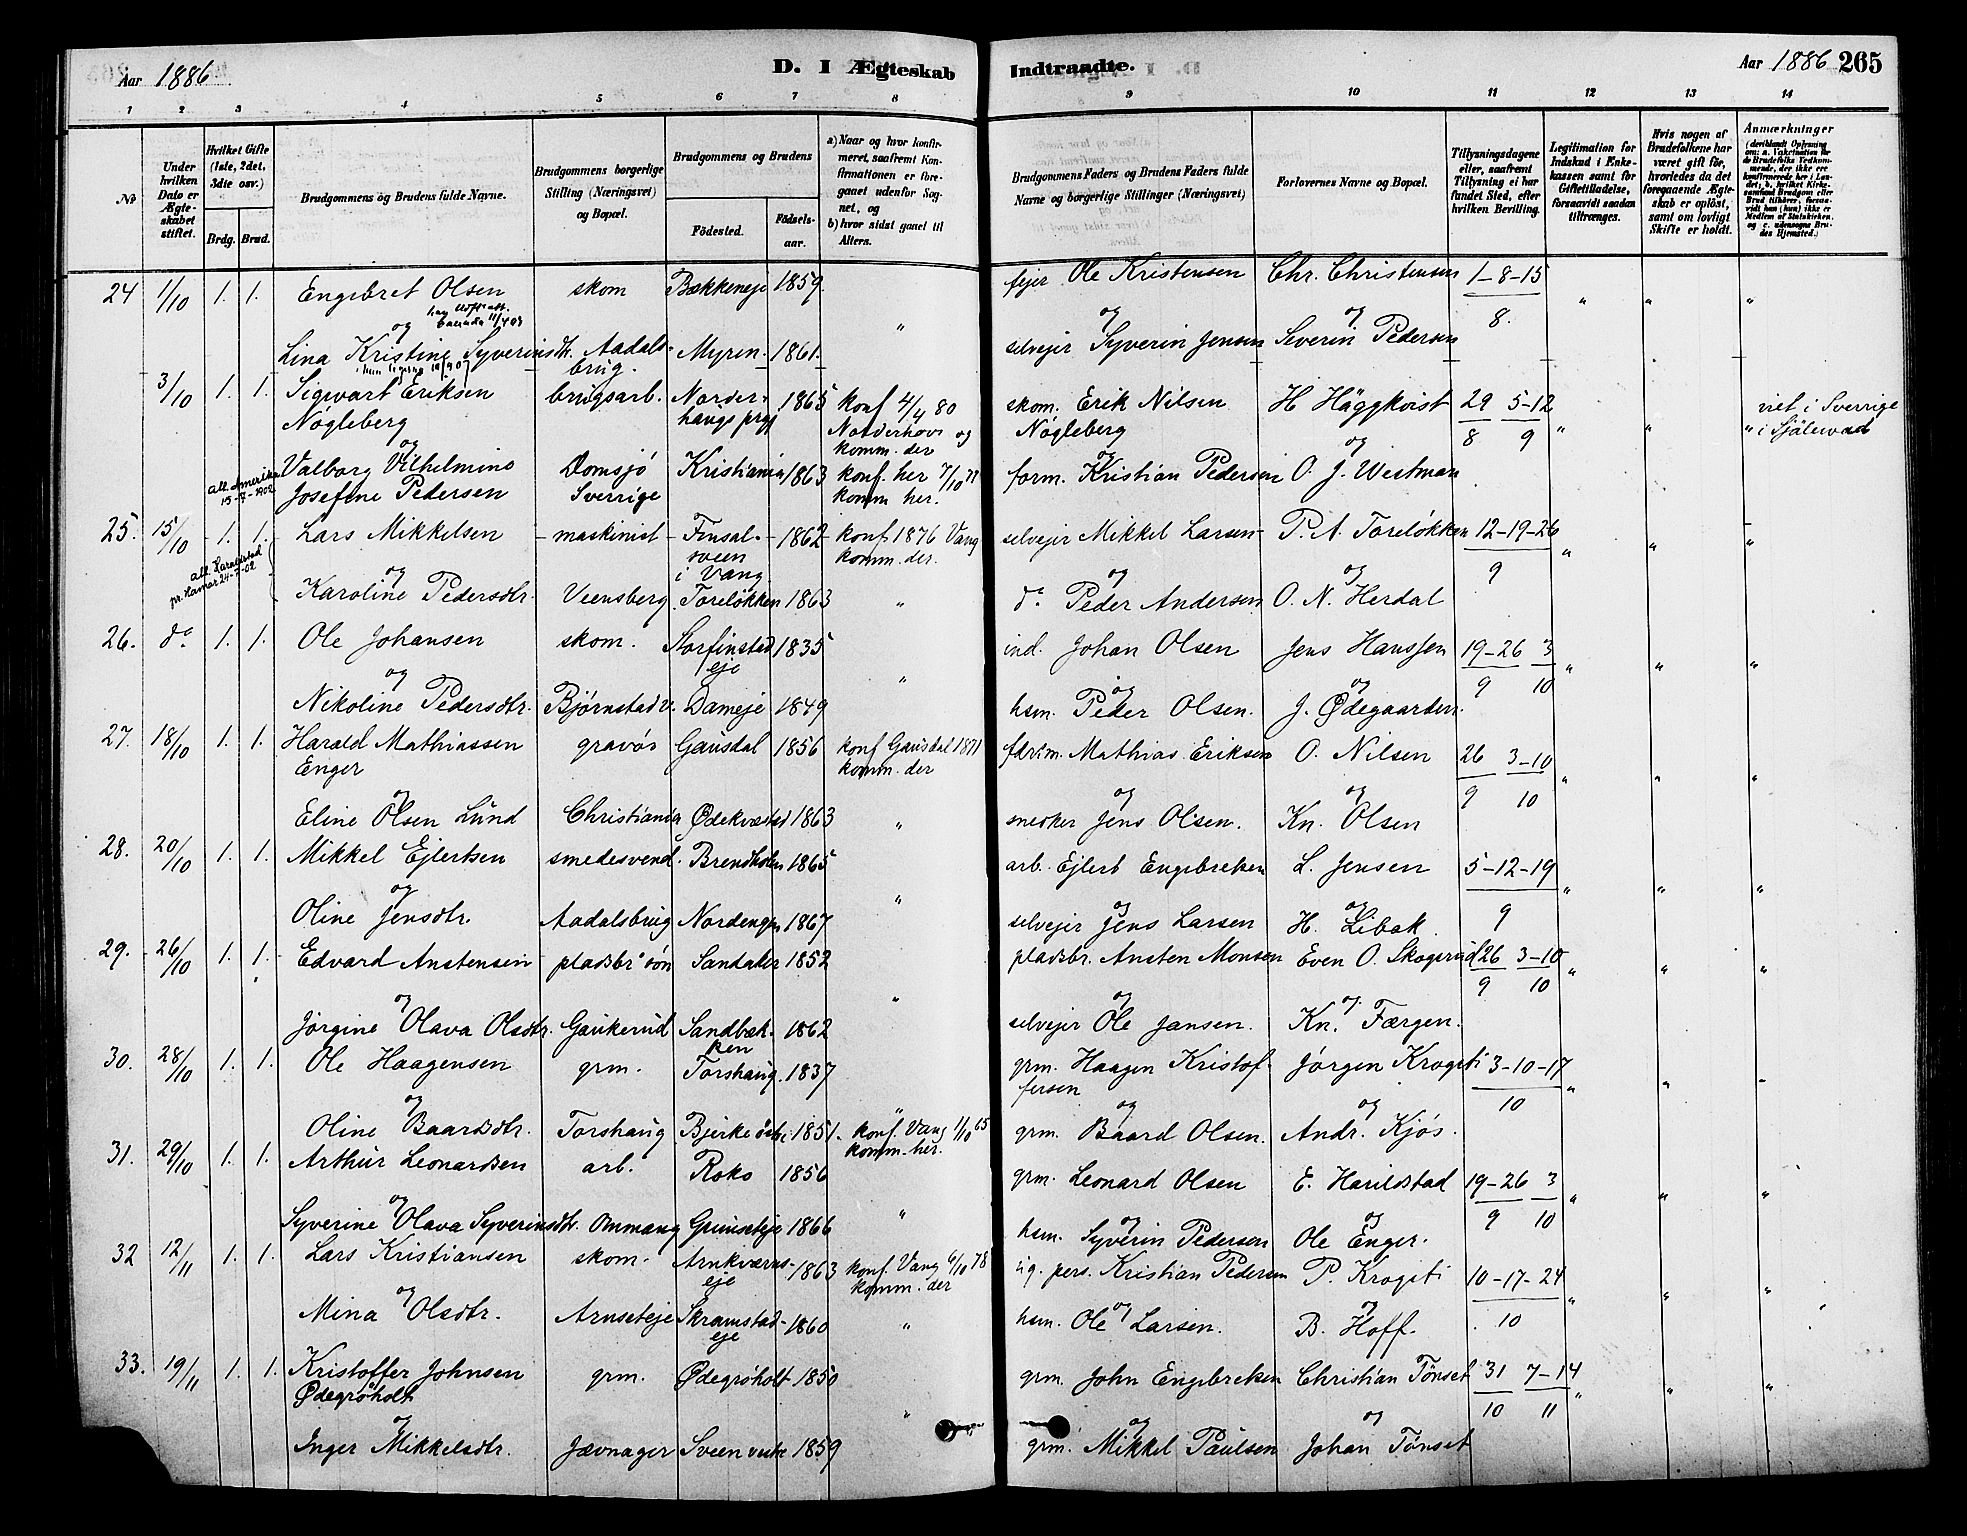 Aar 1886
D. I Ægteskab Indtraadte.
Aar 1886 265
1 2 3 4 5 6 7 8 9 10 11 12 13 14
No
Under hvilken Dato er Ægteskabet stiftet.
Hvilket Gifte (1ste, 2det, 3die osv.)
Brdg. Brud.
Brudgommens og Brudens fulde Navne.
Brudgommens borgerlige Stilling (Næringsvei) og Bopæl.
Brudgommens og Brudens
Fødested. Fødsels-aar.
a) Naar og hvor konfirmeret, saafremt Konfirmationen er foregaaet udenfor Sognet, og
b) hvor sidst ganet til Alters.
Brudgommens Faders og Brudens Faders fulde Navne og borgerlige Stillinger (Næringsvei)
Forlovernes Navne og Bopæl.
Tillysningsdagene eller, saafremt Tillysning ei har fundet Sted, efter hvilken Bevilling.
Legitimation for Indskud i Enkekassen samt for Giftetilladelse, forsaavidt saadan tiltrænges.
Hvis nogen af Brudefolkene har været gift før, hvorledes da det foregaaende Ægteskab er opløst, samt om lovligt Skifte er holdt.
Anmærkninger
24 1/10 1. 1. Engebret Olsen skom Bækkeneje 1859 fejer Ole Kristensen Chr. Christensen 1-8-15
og " og og 8. " " "
Lina Kristine Syverinsdtr. Aadalsbrug. Myren 1861. selvejer Syverin Jensen Severin Pedersen
3/10 1. 1. Sigwart Eriksen brugsarb. Norderhaugs prgj 1865 konf 4/4 80 skom. Erik Nilsen H Häggkvist 29 5-12 viet i Sverrige
Nøgleberg Norderhov og Nøgleberg 8 9 " " " i Själevad
og komm. der og og
Valborg Vilhelmine Domsjö Kristiania 1863 konf. her 7/10 77 form. Kristian Pedersen O. J. Westman
att. Amerika 15-7-1902 Josefine Pedersen Sverrige komm her.
25. 15/10 1. 1. Lars Mikkelsen maskinist Finsalsveen i Vang. 1862 konf 1876 Vang selvejer Mikkel Larsen P. A. Toreløkken 12-19-26
komm. der. 9 " " "
og og og
Karoline Pedersdtr. Veensberg. Toreløkken 1863 " do Peder Andersen O. N. Herdal
26. do 1. 1. Ole Johansen skom. Storfinstad eje 1835 ind. Johan Olsen Jens Hanssen 19-26 3
og " og og 9 10 " " "
Nikoline Pedersdtr. Bjørnstadv. Dameje 1849 hsm. Peder Olsen. J. Ødegaarden
27. 18/10 1. 1. Harald Mathiassen gravør Gausdal 1856 konf Gausdal 1871 Mathias Eriksen O. Nilsen 26 3-10
Enger komm. der 9 10 " " "
og og og
Eline Olsen Lund Christiania Ødekvæstad 1863 " snedker Jens Olsen. Kn. Olsen
28. 20/10 1. 1. Mikkel Ejlertsen smedesvend. 1865 arb. Ejlert Engebretsen L. Jensen 5-12-19
og " og og 9 " " "
Oline Jensdtr. Aadalsbrug Nordengen 1867 selvejer Jens Larsen H. Libak
29. 26/10 1. 1. Edvard Anstensen pladsbr søn Sandaker 1852 pladsbr. Ansten Monsen Even O. Skogsrud 26 3-10
og " og og 9 10 " " "
Jørgine Olava Olsdtr. Gaukerud Sandbækken 1862 selvejer Ole Jansen. Kn. Færgen.
30. 28/10 1. 1. Ole Haagensen grm. Torshaug. 1837 grm. Haagen Kristoffersen Jørgen Krogsti 3-10-17
og " og og 10 " " -
Oline Baardsdtr. Torshaug Bjerke østr 1851. konf. Vang 1/10 65 komm. her. grm. Baard Olsen. Andr. Kjøs.
31. 29/10 1. 1. Arthur Leonardsen arb. Roko 1856 grm. Leonard Olsen E. Harildstad 19-26 3
og " og og 9 10 " " "
Syverine Olava Syverinsdtr. Ommang Grimseteje 1866 hsm. Syverin Pedersen Ole Enger.
32 12/11 1. 1. Lars Kristiansen skom. Arnkværnseje 1863 konf. Vang 6/10 78 komm. der pers. Kristian Pedersen P. Krogsti 10-17-24
og og og 10 " " "
Mina Olsdtr. Arnseteje Skramstadeje 1860 " hsm. Ole Larsen. B. Hoff.
33. 19/11 1. 1. Kristoffer Johnsen grm. Ødegrøholt 1850 grm. John Engebretsen Christian Tønset 31 7-14
Ødegrøholt 10 11 " " "
og " og og
Inger Mikkelsdtr. Jævnager Sveen vestre 1859 grm. Mikkel Paulsen Johan Tønset